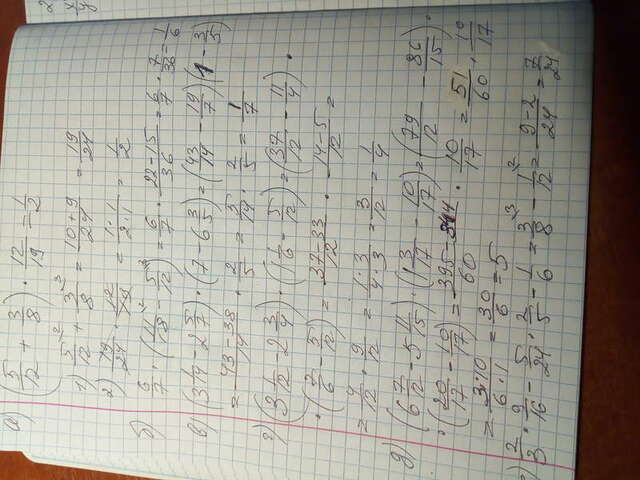 а) (5/12 + 3/8) · 12/19 = 1/2
1) 5/12 + 3/8 = 10+9/24 = 19/24
2) 19/24 · 12/19 = 1·1/2·1 = 1/2
б) 6/7 · (11/18 - 5/12) = 6/7 · 22-15/36 = 6/7 · 7/36 = 1/6
в) (3 1/14 - 2 5/7) · (7 - 6 3/5) = (43/14 - 19/7) (1 - 3/5)
= 43-38/14 · 2/5 = 5/14 · 2/5 = 1/7
г) (3 1/12 - 2 3/4) · (1 1/6 - 5/12) = (37/12 - 11/4) ·
· (7/6 - 5/12) = 37-33/12 · 14-5/12 =
= 4/12 · 9/12 = 1·3/4·3 = 3/12 = 1/4
д) (6 7/12 - 5 11/15) · (1 3/17 - 10/17) = (79/12 - 86/15) ·
· (20/17 - 10/17) = 395-344/60 · 10/17 = 51/60 · 10/17
= 3·10/6·1 = 30/6 = 5
2/3 · 9/16 - 5/24 · 2/5 - 1/6 = 3/8 - 1/12 = 9-2/24 = 7/24